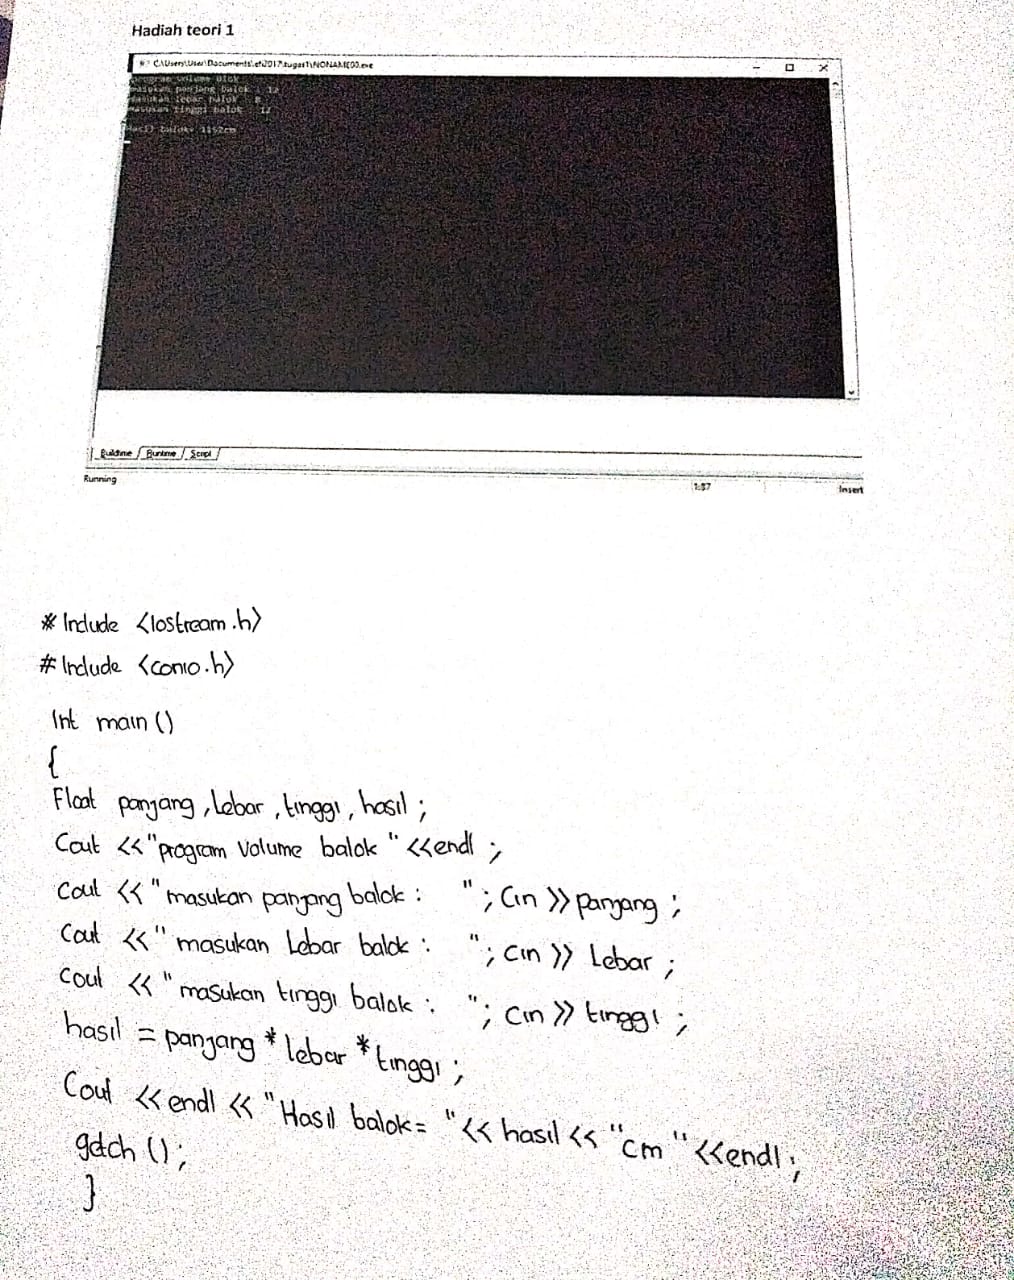 Hadiah teori 1
program volume blok
masukan panjang balok : 12
masukan lebar balok : 8
masukan tinggi balok : 12
Hasil balok= 1152cm
Buildtime / Runtime / Script /
Running 1:57 Insert
# Include <Iostream.h>
# Include <conio.h>
Int main ()
{
Float panjang , Lebar , tinggi , hasil ;
Cout <<"program Volume balok " <<endl ;
cout << "masukan panjang balok : "; Cin >> panjang ;
Cout << " masukan Lebar balok : "; cin >> Lebar ;
Cout << "masukan tinggi balok : "; cin >> tinggi ;
hasil = panjang * lebar * tinggi ;
Cout << endl << "Hasil balok= "<< hasil << "cm " <<endl ;
getch ();
}